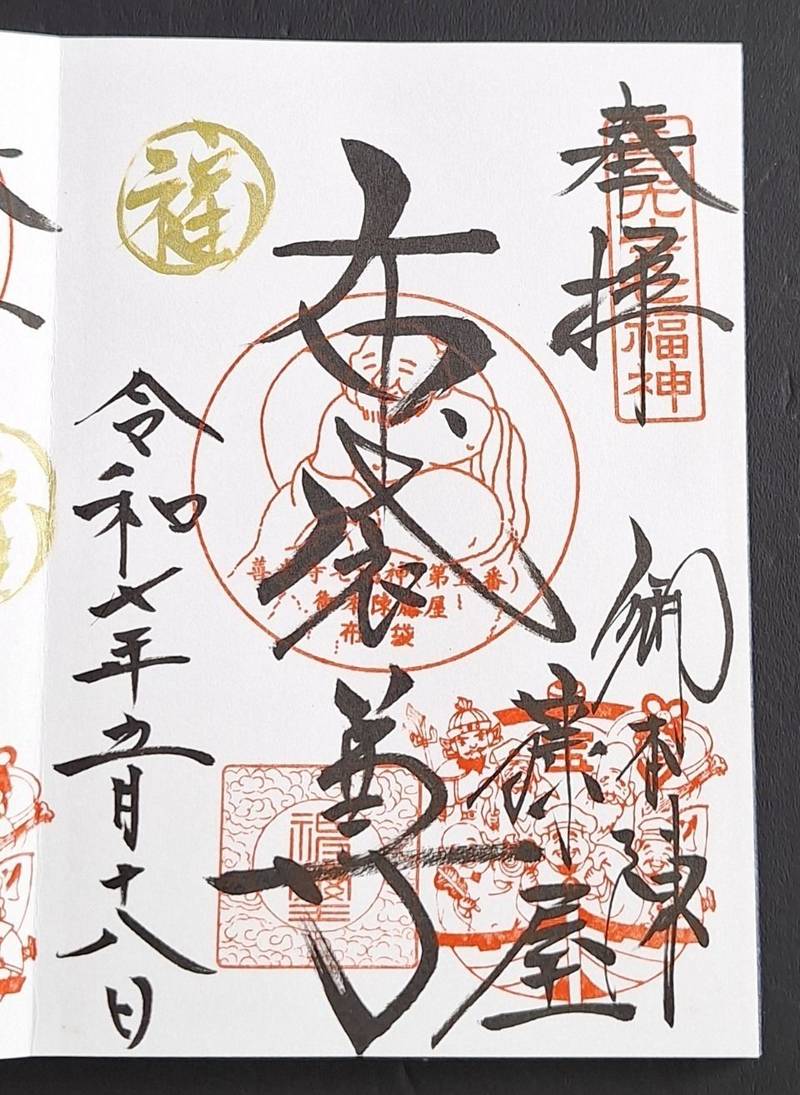 奉拝
善光寺七福神
御本陣
藤屋
布袋尊
善光寺七福神(第五番)
御本陳藤屋
布袋
福
令和七年五月十八日